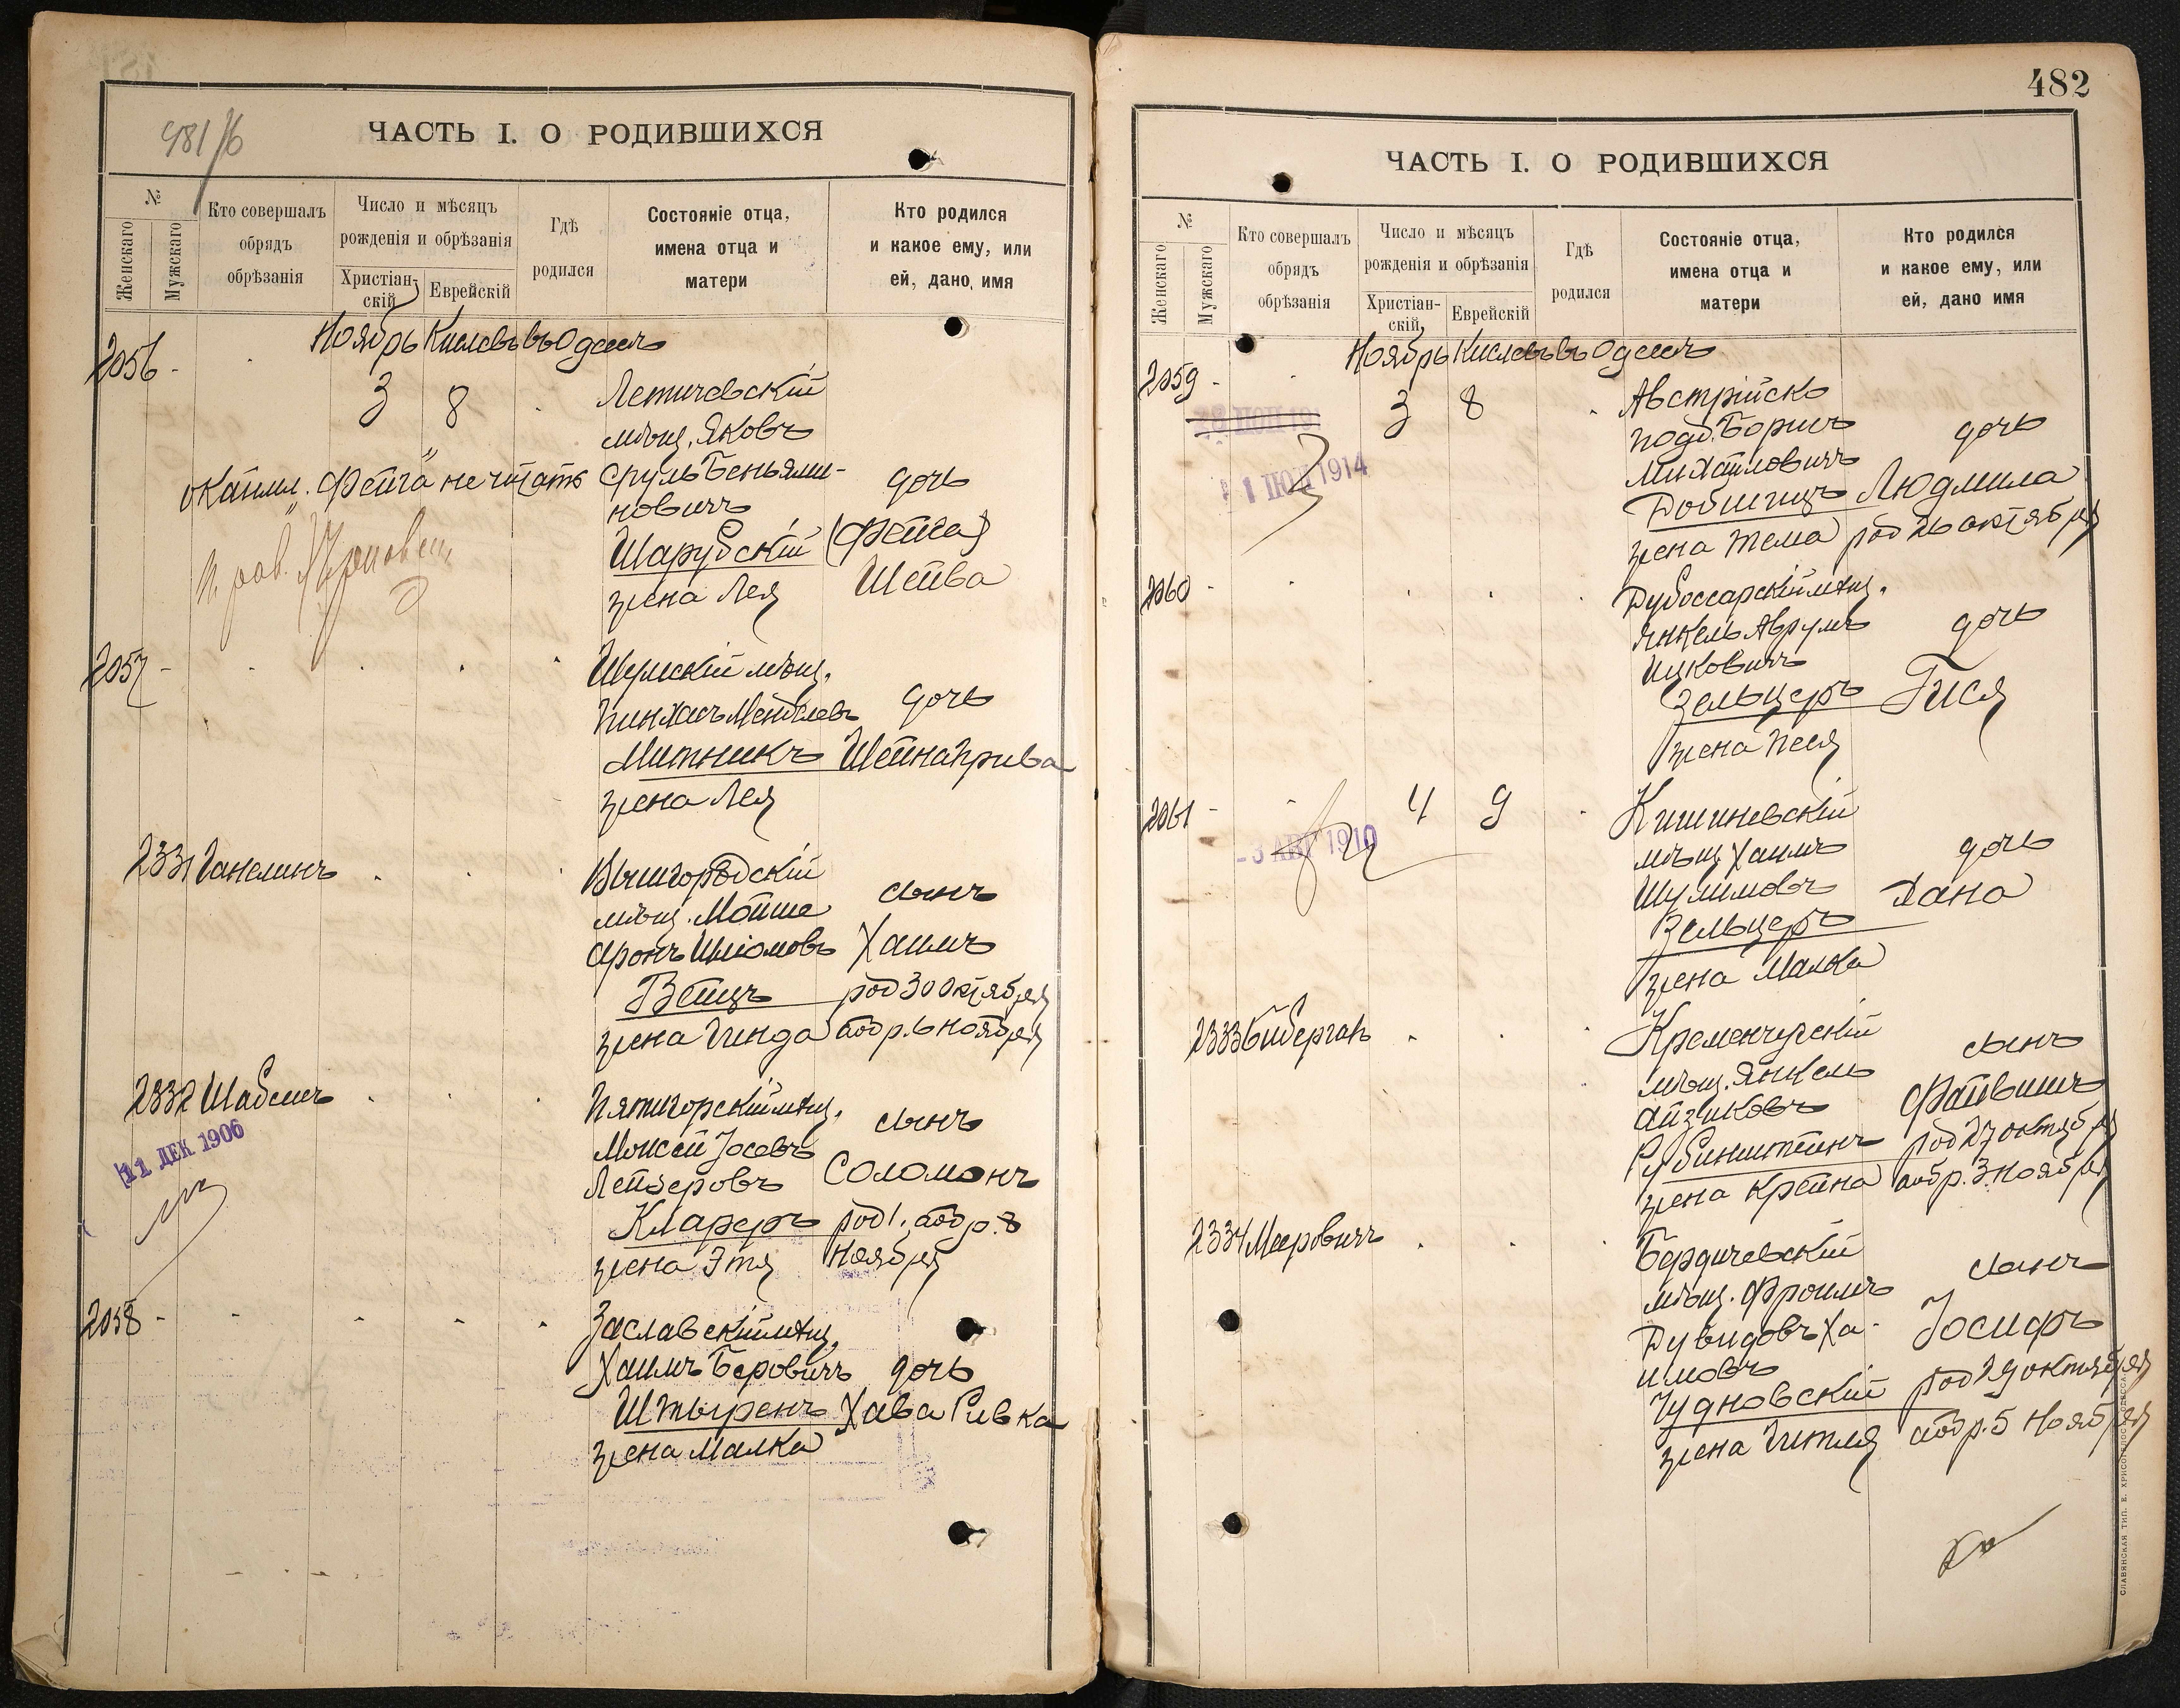 481/6
ЧАСТЬ I. О РОДИВШИХСЯ
№
Женскаго
Мужскаго
Кто совершалъ обрядъ обрѣзанія
Число и мѣсяцъ рожденія и обрѣзанія
Христіан-скій
Еврейскій
Гдѣ родился
Состояніе отца, имена отца и матери
Кто родился и какое ему, или ей, дано имя
Ноябрь Кислевъ въ Одессѣ
2056 -
3 8
Летичевскій
мѣщ. Яковъ
Сруль Беньями-
новичъ
Шарубскій
жена Лея
дочь
(Фейга)
Шейва
"Фейга" не читать
2057 -
Шумскій мѣщ.
Пинхасъ Менделевъ
Митникъ
жена Лея
дочь
Шейна Прива
2331 Ганелинъ
Вышгородскій
мѣщ. Мойше
Аронъ Шліомовъ
Вейцъ
жена Гинда
сынъ
Хаимъ
род 30 октября
обр. 6 ноября
2332 Шабсисъ
11 ДЕК 1906
Пятигорскій мѣщ.
Моисей Іосевъ
Лейзеровъ
Клареръ
жена Этя
сынъ
Соломонъ
род 1. обр. 8
ноября
2058 -
Заславскій мѣщ.
Хаимъ Беровичъ
Штыренъ
жена Малка
дочь
Хава Ривка
482
ЧАСТЬ I. О РОДИВШИХСЯ
№
Женскаго
Мужскаго
Кто совершалъ обрядъ обрѣзанія
Число и мѣсяцъ рожденія и обрѣзанія
Христіан-скій
Еврейскій
Гдѣ родился
Состояніе отца, имена отца и матери
Кто родился и какое ему, или ей, дано имя
Ноябрь Кислевъ въ Одессѣ
2059 -
1 ІЮЛ 1914
3 8
Австрійско
подд. Борисъ
Михайловичъ
Добшицъ
жена Тема
дочь
Людмила
род 26 октября
2060 -
Дубоссарскій мѣщ.
Янкель Аврумъ
Ицковичъ
Зельцеръ
жена Песя
дочь
Гися
2061 -
- 3 АВГ 1910
4 9
Кишиневскій
мѣщ. Хаимъ
Шулимовъ
Зельцеръ
жена Малка
дочь
Хана
2333 Гибергалъ
Кременчугскій
мѣщ. Янкель
Айзиковъ
Рубинштейнъ
жена Крейна
сынъ
Файвишъ
род 27 октября
обр. 3 ноября
2334 Мееровичъ
Бердичевскій
мѣщ. Фроимъ
Дувидовъ Ха-
имовъ
Чудновскій
жена Гитля
сынъ
Іосифъ
род 29 октября
обр. 5 ноября